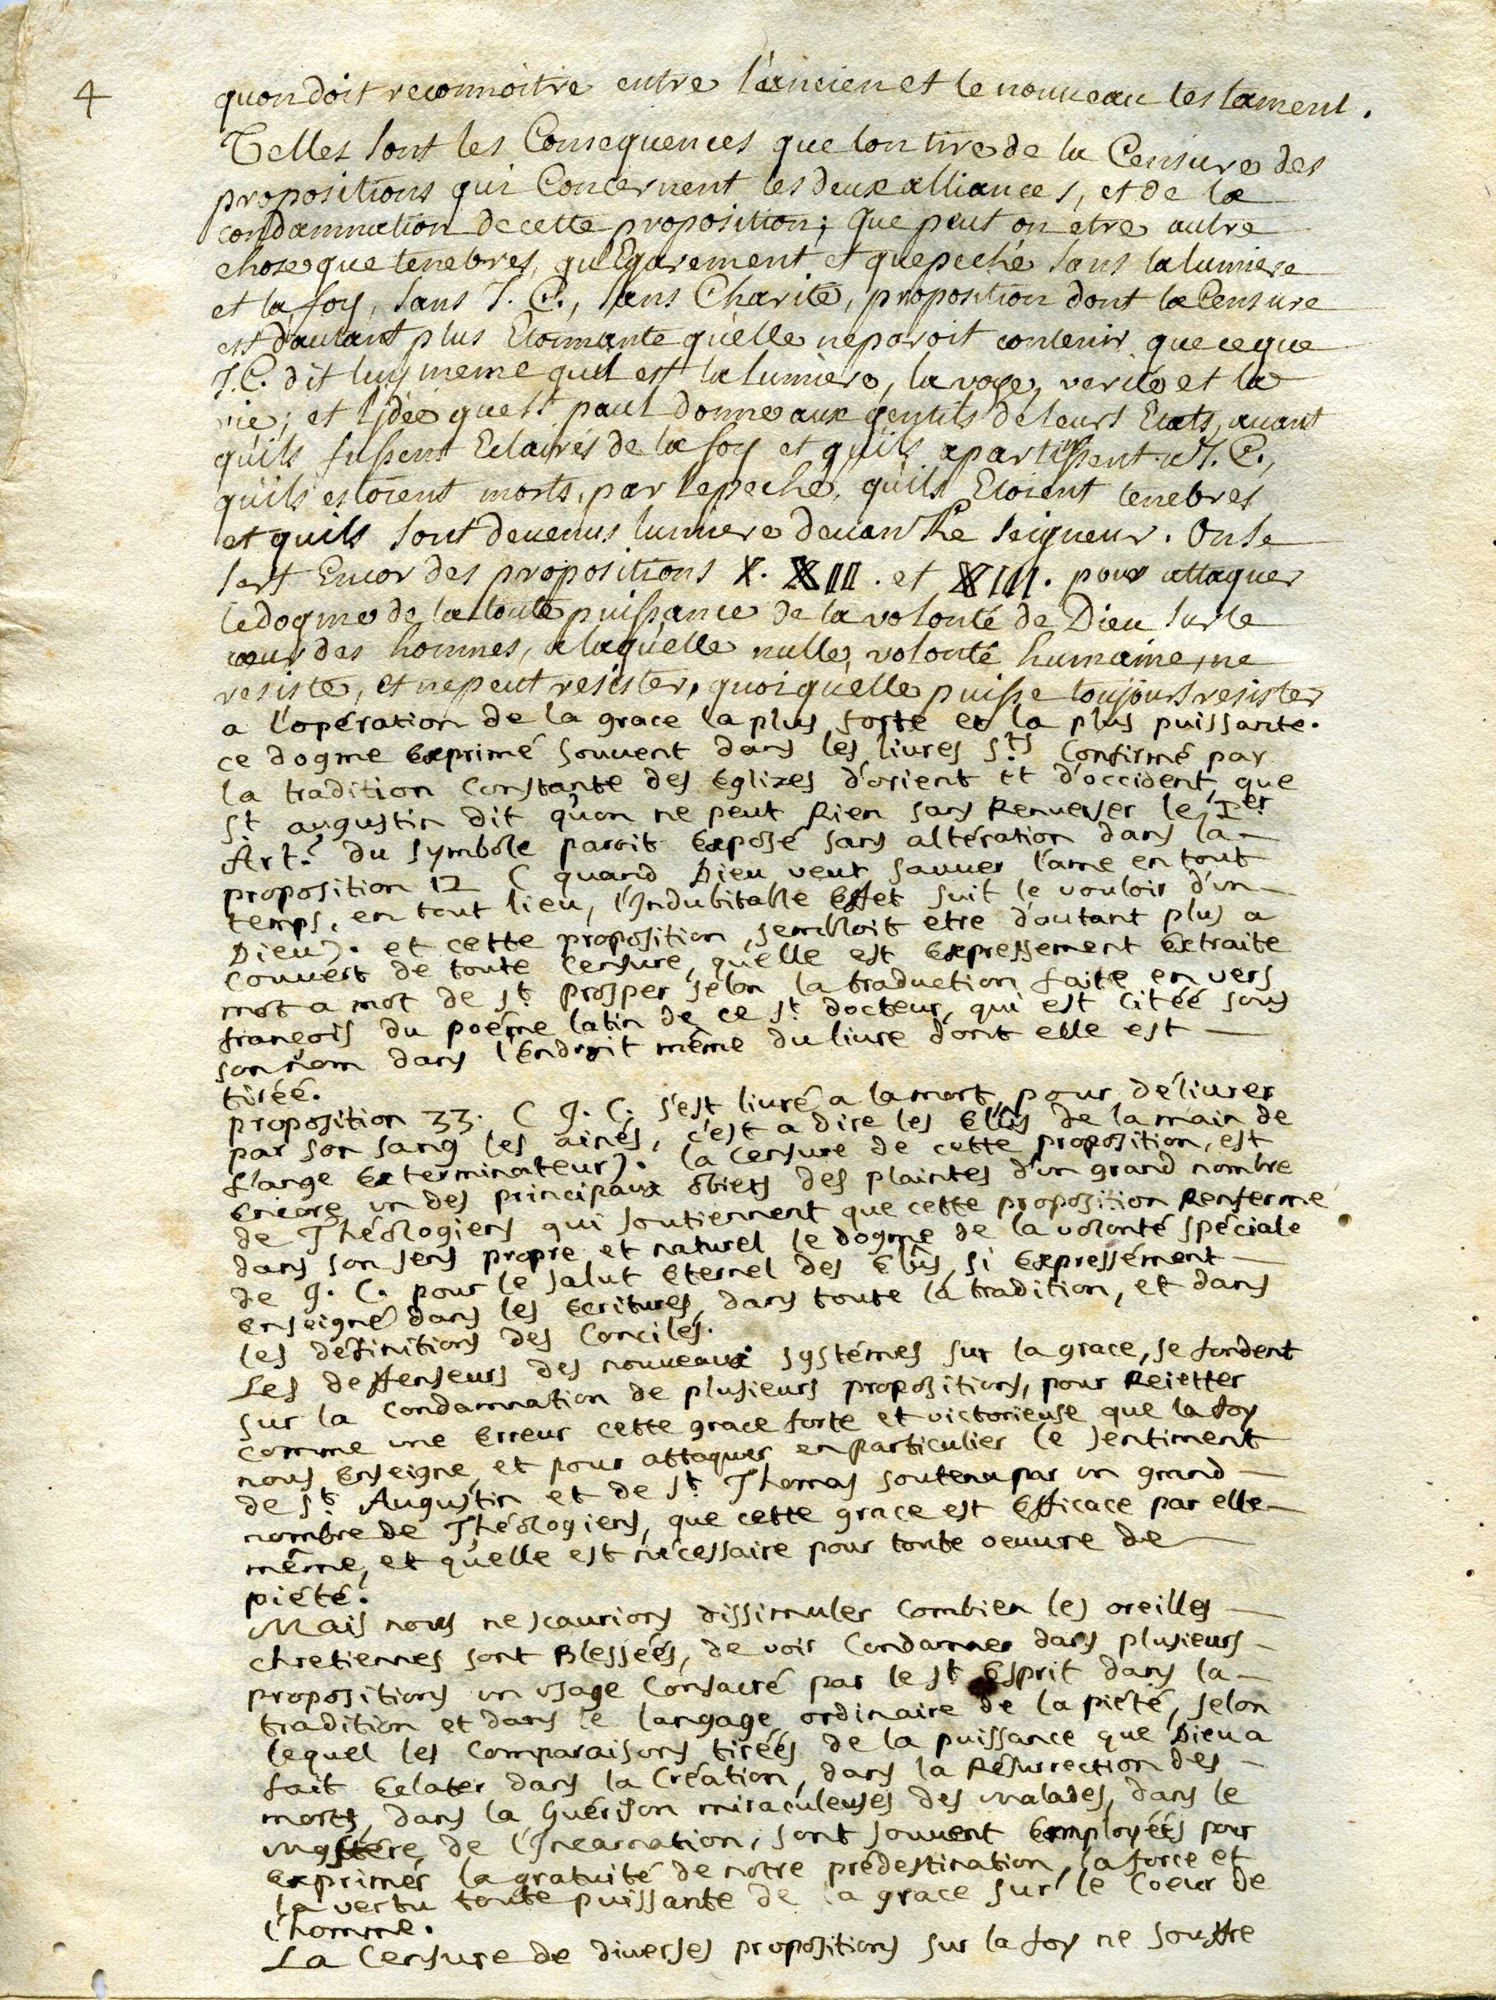 4
quon doit reconnoitre entre l'ancien et le nouveau testament.
Telles sont les Consequences que lon tire de la Censure des
propositions qui Concernent les deux alliances, et de la
condamnation de cette proposition; que peut on etre autre
chose que tenebres, qu'Egarement et que peché sans la lumiere
et la foy, sans J. C., sans Charité, proposition dont la Censure
est d'autant plus Etonnante qu'elle ne paroit contenir que ce que
J. C. dit luy meme quil est la lumiere, la voye, verité et la
vie; et lidée que St paul donne aux gentils de leurs Etats, avant
qu'ils fussent Eclairés de la foy et qu'ils apartissent a J. C.,
qu'ils estoient morts par le peché, qu'ils Etoient tenebres
et quils sont devenus lumiere devant le Seigneur. On se
sert Encor des propositions X. XII. et XIII. pour attaquer
le dogme de la toute puissance de la volonté de Dieu sur le
cœur des hommes, a laquelle nulle volonté humaine, ne
resiste, et ne peut resister, quoi qu'elle puisse toujours resister
a l'opération de la grace la plus forte et la plus puissante.
ce dogme exprimé souvent dans les livres Sts Confirmé par
la tradition Constante des Eglizes d'orient et d'occident, que
St augustin dit qu'on ne peut Rien sans Renverser le Ier
Art. du symbole paroit exposé sans altération dans la —
proposition 12 ( quand Dieu veut sauver l'ame en tout
temps, en tout lieu, l'Indubitable effet suit le vouloir d'un —
Dieu). et cette proposition sembloit etre d'autant plus a
couvert de toute Censure, qu'elle est expressement extraite
mot a mot de St prosper selon la traduction faite en vers
françois du poéme latin de ce St docteur, qui est citéé sous
son nom dans l'Endroit même du livre dont elle est —
tiréé.
proposition 33. ( J. C. s'est livré a la mort, pour délivrer
par son sang les ainés, c'est a dire les elûs de la main de
l'ange exterminateur). la Censure de cette proposition, est
encore un des principaux obiets des plaintes d'un grand nombre
de Théologiens qui soutiennent que cette proposition Renferme
dans son sens propre et naturel le dogme de la volonté spéciale
de J. C. pour le salut eternel des elûs, si expressément —
enseigné dans les ecritures, dans toute la tradition, et dans
les definitions des Conciles.
Les deffenseurs des nouveaux systémes sur la grace, se fondent
sur la Condamnation de plusieurs propositions, pour Reietter
comme une erreur cette grace forte et victorieuse que la foy
nous enseigne, et pour attaquer en particulier le sentiment
de St Augustin et de St Thomas soutenu par un grand —
nombre de Théologiens, que cette grace est efficace par elle —
même, et qu'elle est nécessaire pour toute oeuvre de —
piété.
Mais nous ne scaurions dissimuler Combien les oreilles —
chretiennes sont Blesséés, de voir Condamner dans plusieurs —
propositions un usage Consacré par le St Esprit dans la —
tradition et dans le langage ordinaire de la piété, selon
lequel les comparaisons tiréés de la puissance que Dieu a
fait eclater dans la Création, dans la Résurrection des —
morts, dans la Guérison miraculeuses des malades, dans le
mystére de l'Incarnation, sont souvent employéés pour
exprimer la gratuité de notre prédestination, la force et
la vertu toute puissante de la grace sur le Coeur de
l'homme.
La Censure de diverses propositions sur la foy ne souffre